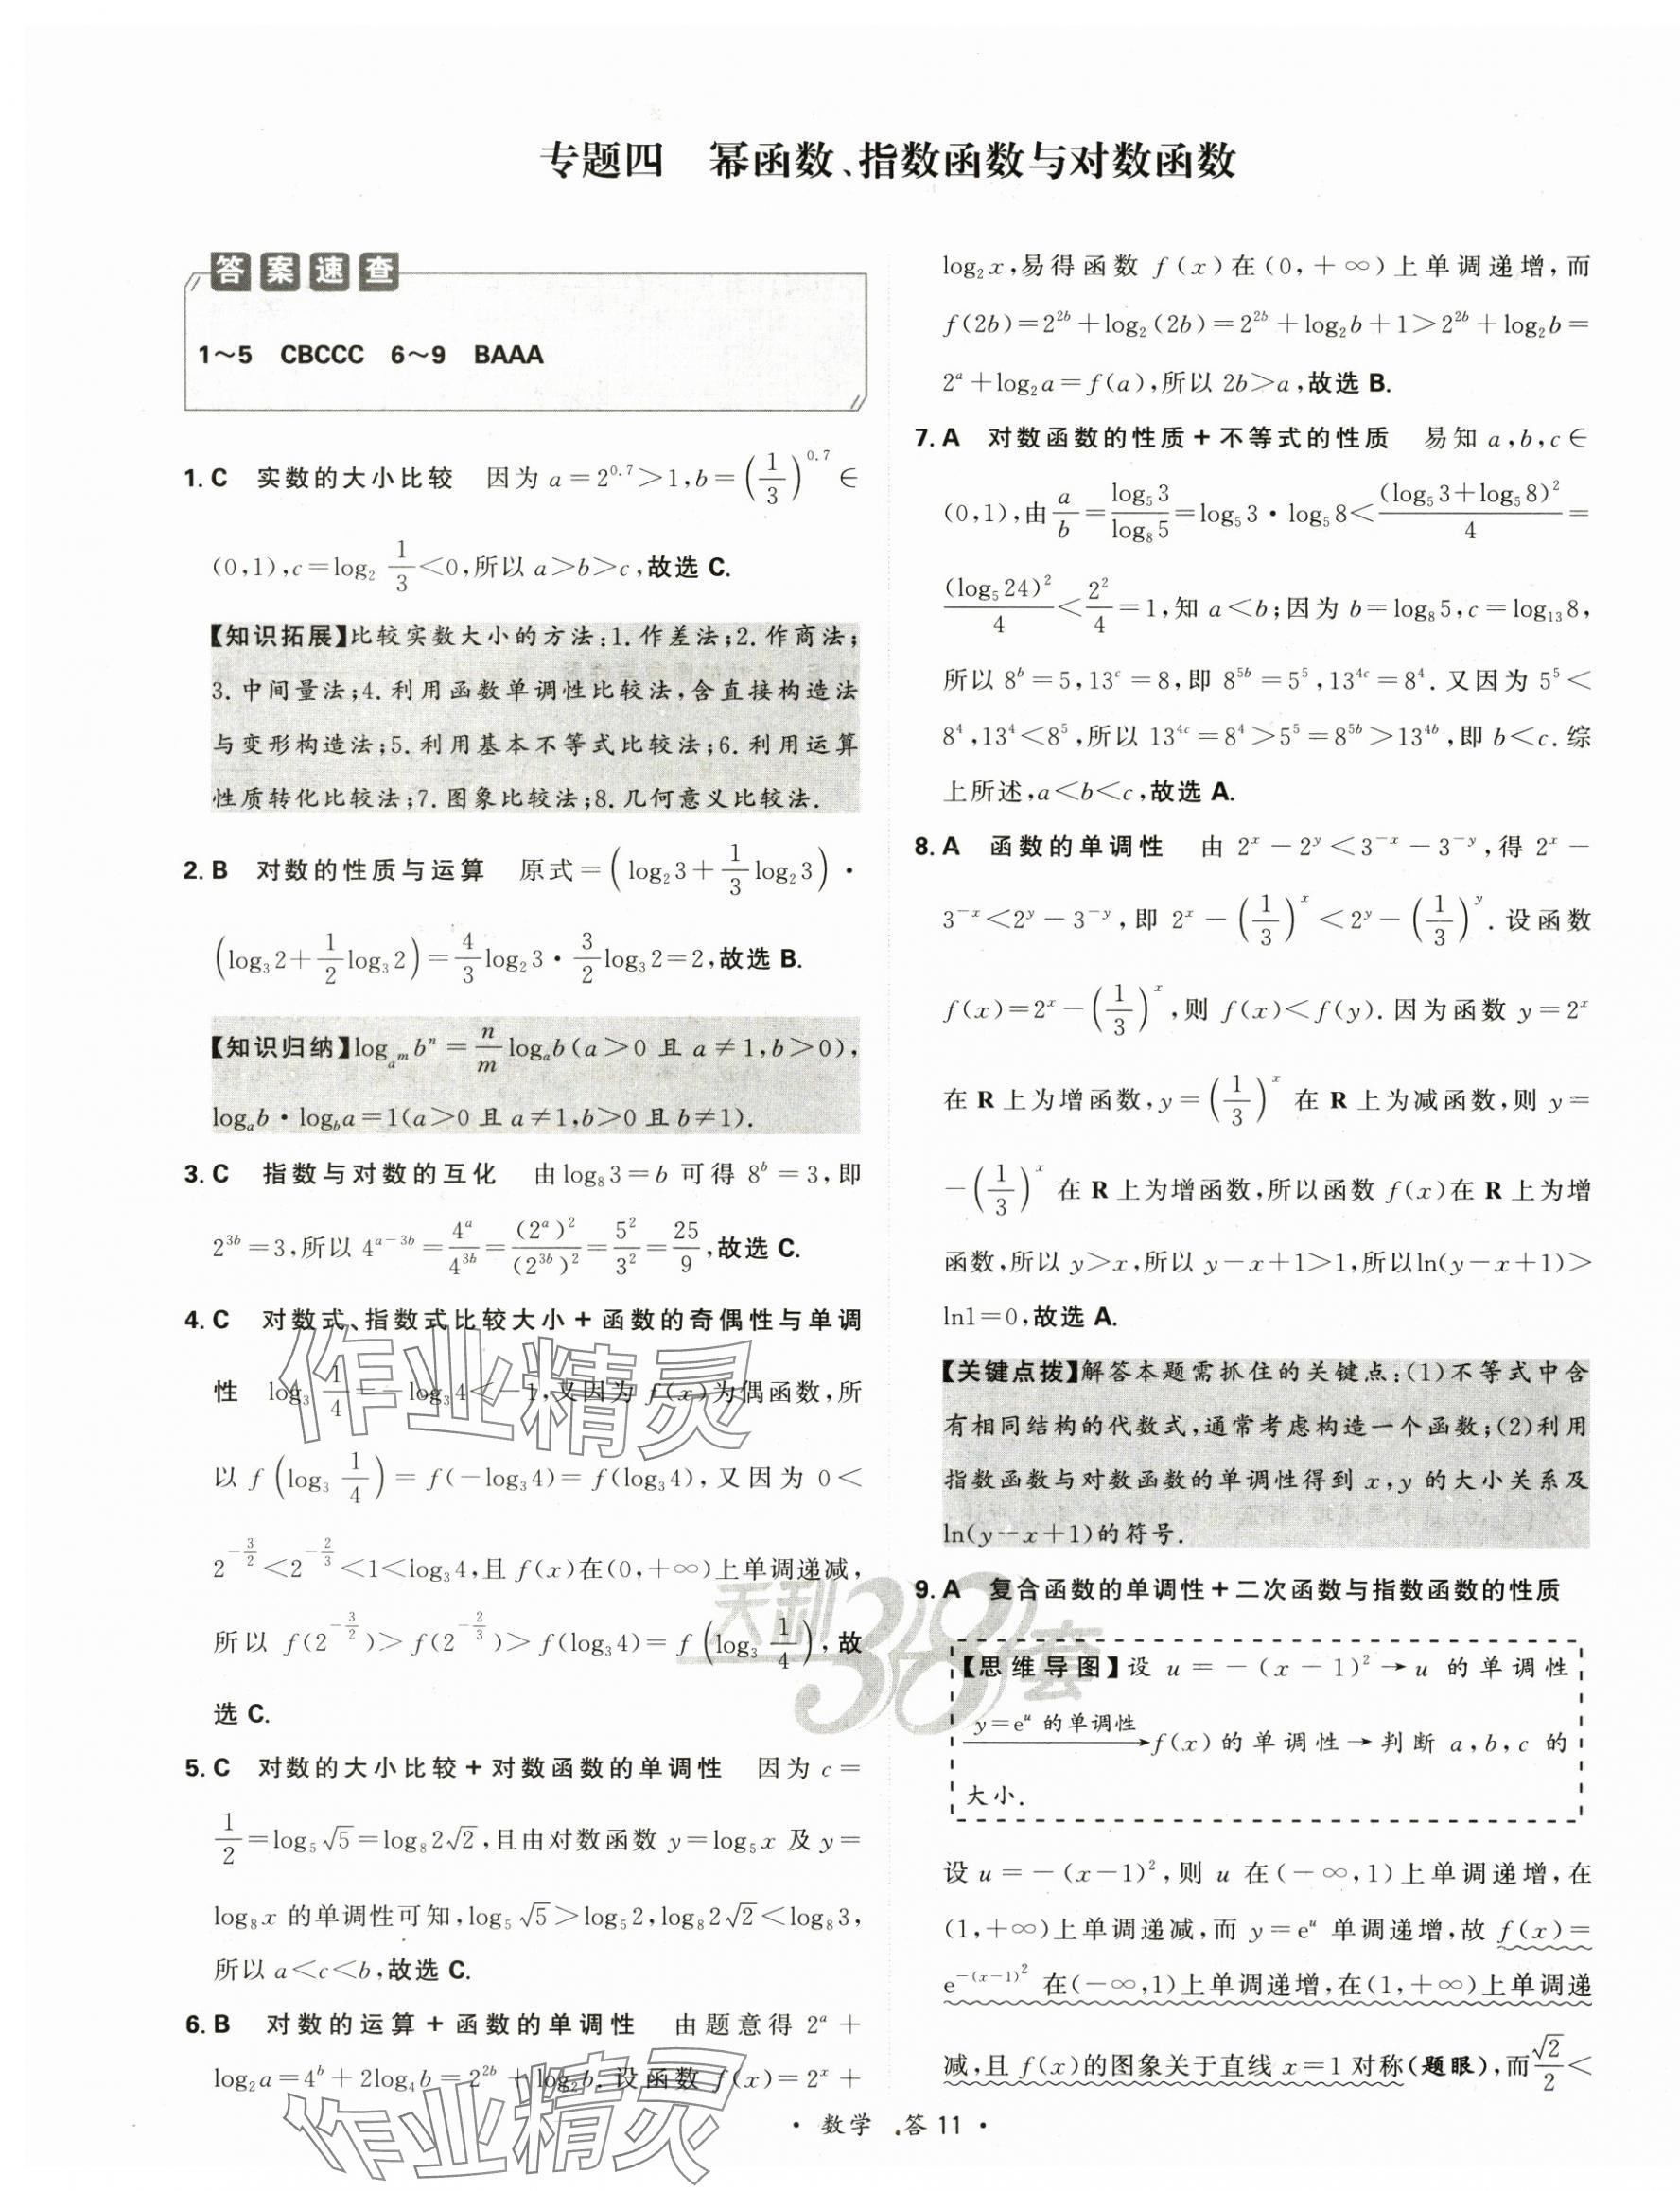 专题四 幂函数、指数函数与对数函数
答案速查
1～5 CBCCC 6～9 BAAA
1. C 实数的大小比较 因为 a＝2^{0.7}＞1, b＝(1/3)^{0.7}∈
(0,1), c＝log₂ 1/3＜0,所以 a＞b＞c,故选 C.
【知识拓展】比较实数大小的方法:1. 作差法;2. 作商法;
3. 中间量法;4. 利用函数单调性比较法,含直接构造法
与变形构造法;5. 利用基本不等式比较法;6. 利用运算
性质转化比较法;7. 图象比较法;8. 几何意义比较法.
2. B 对数的性质与运算 原式＝(log₂3＋1/3 log₂3)·
(log₃2＋1/2 log₃2)＝4/3 log₂3·3/2 log₃2＝2,故选 B.
【知识归纳】log_{a^m} b^n＝n/m log_a b(a＞0 且 a≠1,b＞0),
log_a b·log_b a＝1(a＞0 且 a≠1,b＞0 且 b≠1).
3. C 指数与对数的互化 由 log₈3＝b 可得 8^b＝3,即
2^{3b}＝3,所以 4^{a－3b}＝4^a/4^{3b}＝(2^a)²/(2^{3b})²＝5²/3²＝25/9,故选 C.
4. C 对数式、指数式比较大小＋函数的奇偶性与单调
性 log₃ 1/4＝－log₃4＜－1,又因为 f(x)为偶函数,所
以 f(log₃ 1/4)＝f(－log₃4)＝f(log₃4),又因为 0＜
2^{－3/2}＜2^{－2/3}＜1＜log₃4,且 f(x)在(0,＋∞)上单调递减,
所以 f(2^{－3/2})＞f(2^{－2/3})＞f(log₃4)＝f(log₃ 1/4),故
选 C.
5. C 对数的大小比较＋对数函数的单调性 因为 c＝
1/2＝log₅√5＝log₈2√2,且由对数函数 y＝log₅x 及 y＝
log₈x 的单调性可知,log₅√5＞log₅2,log₈2√2＜log₈3,
所以 a＜c＜b,故选 C.
6. B 对数的运算＋函数的单调性 由题意得 2^a＋
log₂a＝4^b＋2log₄b＝2^{2b}＋log₂b. 设函数 f(x)＝2^x＋
log₂x,易得函数 f(x)在(0,＋∞)上单调递增,而
f(2b)＝2^{2b}＋log₂(2b)＝2^{2b}＋log₂b＋1＞2^{2b}＋log₂b＝
2^a＋log₂a＝f(a),所以 2b＞a,故选 B.
7. A 对数函数的性质＋不等式的性质 易知 a,b,c∈
(0,1),由 a/b＝log₅3/log₈5＝log₅3·log₅8＜(log₅3＋log₅8)²/4＝
(log₅24)²/4＜2²/4＝1,知 a＜b;因为 b＝log₈5,c＝log₁₃8,
所以 8^b＝5,13^c＝8,即 8^{5b}＝5⁵,13^{4c}＝8⁴. 又因为 5⁵＜
8⁴,13⁴＜8⁵,所以 13^{4c}＝8⁴＞5⁵＝8^{5b}＞13^{4b},即 b＜c. 综
上所述,a＜b＜c,故选 A.
8. A 函数的单调性 由 2^x－2^y＜3^{－x}－3^{－y},得 2^x－
3^{－x}＜2^y－3^{－y},即 2^x－(1/3)^x＜2^y－(1/3)^y. 设函数
f(x)＝2^x－(1/3)^x,则 f(x)＜f(y). 因为函数 y＝2^x
在 R 上为增函数,y＝(1/3)^x 在 R 上为减函数,则 y＝
－(1/3)^x 在 R 上为增函数,所以函数 f(x)在 R 上为增
函数,所以 y＞x,所以 y－x＋1＞1,所以ln(y－x＋1)＞
ln1＝0,故选 A.
【关键点拨】解答本题需抓住的关键点:(1)不等式中含
有相同结构的代数式,通常考虑构造一个函数;(2)利用
指数函数与对数函数的单调性得到 x,y 的大小关系及
ln(y－x＋1)的符号.
9. A 复合函数的单调性＋二次函数与指数函数的性质
【思维导图】设 u＝－(x－1)²→u 的单调性
y＝e^u 的单调性→f(x)的单调性→判断 a,b,c 的
大小.
设 u＝－(x－1)²,则 u 在(－∞,1)上单调递增,在
(1,＋∞)上单调递减,而 y＝e^u 单调递增,故 f(x)＝
e^{－(x－1)²} 在(－∞,1)上单调递增,在(1,＋∞)上单调递
减,且 f(x)的图象关于直线 x＝1 对称(题眼),而√2/2＜
·数学 答 11·
作业精灵
天利38套
作业精灵